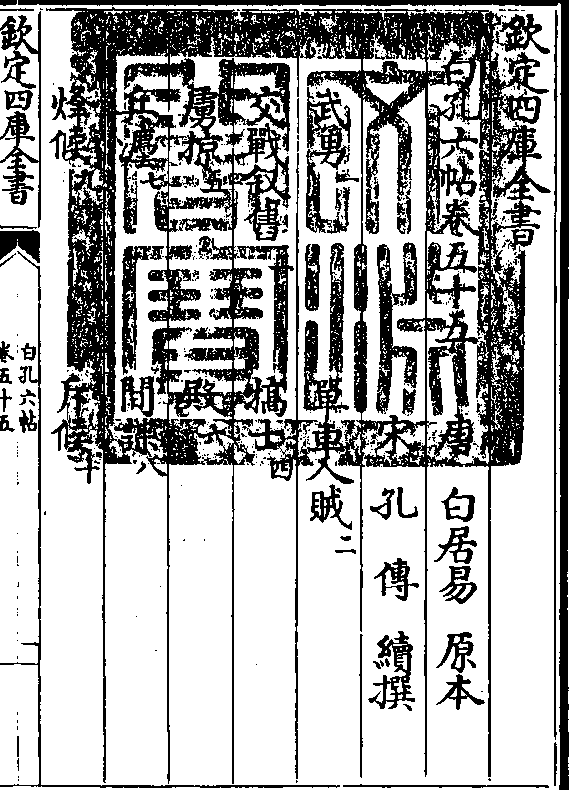 欽定四庫全書
白孔六帖卷五十五 唐 白居易 原本
宋 孔傳 續撰
武勇一 單車入賊二
交戰敘舊 犒士四
虜掠五 殿六
兵灋七 間諜八
烽候九 斥候十
文淵閣寶
欽定四庫全書
白孔六帖
卷五十五
一